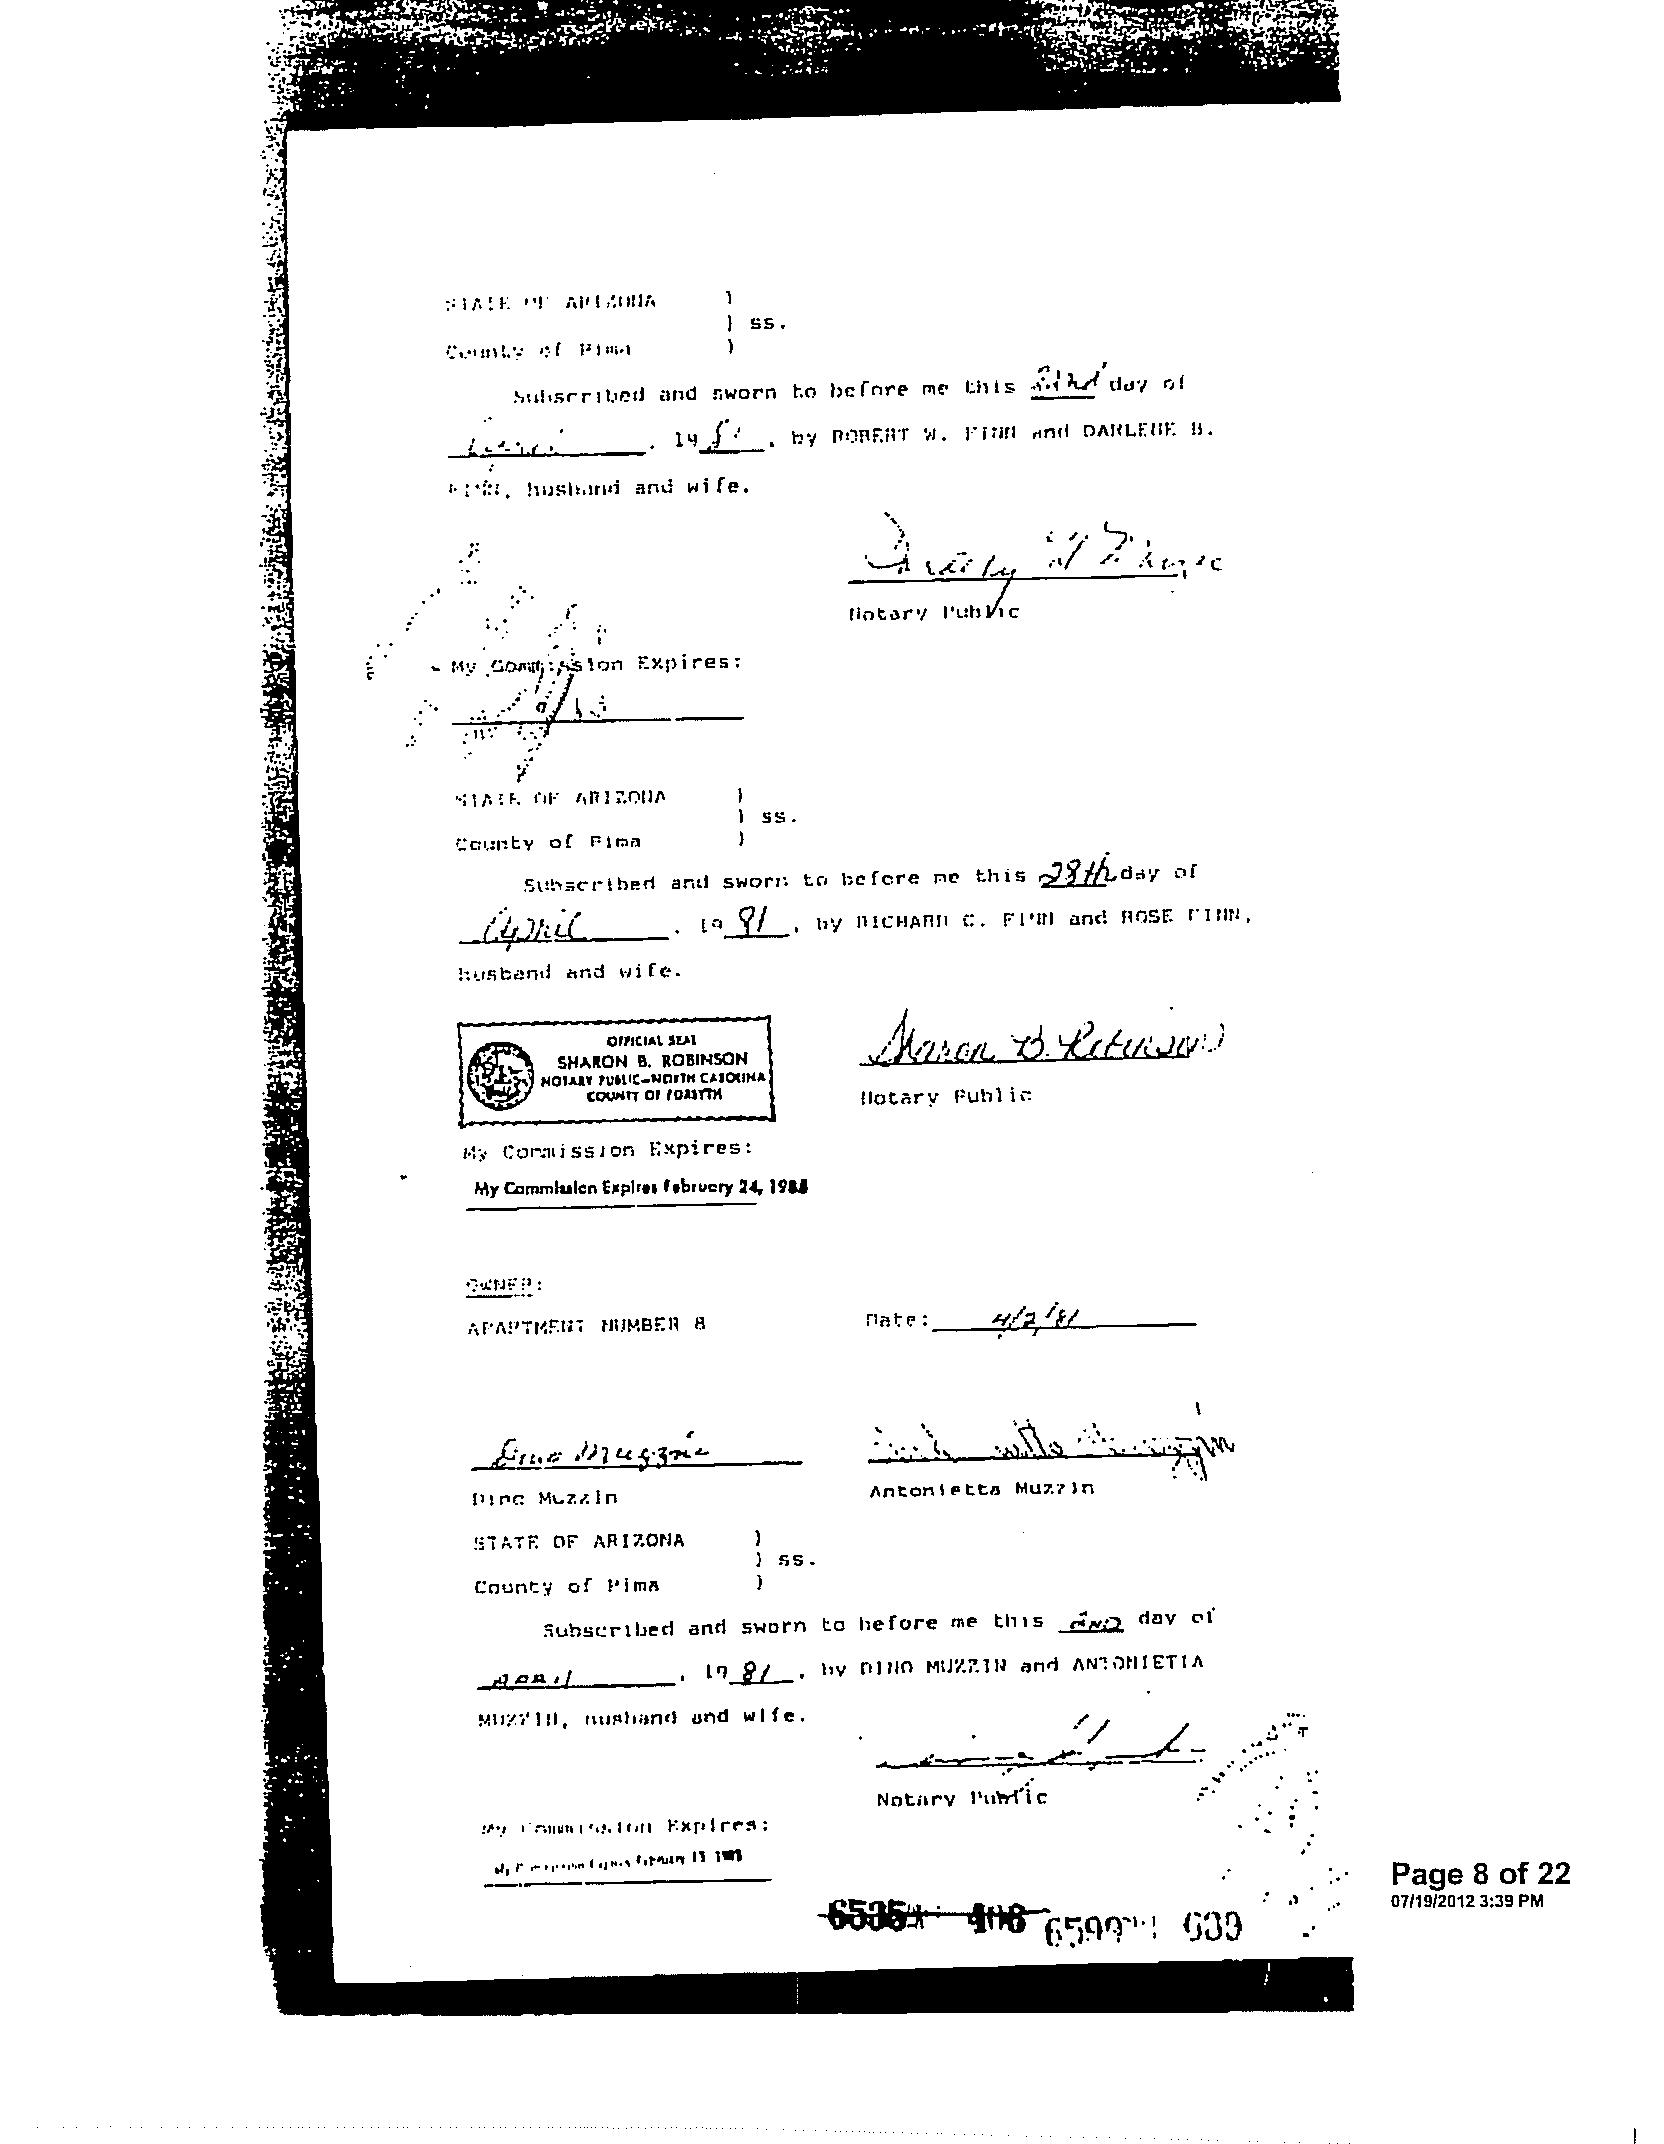 STATE OF ARIZONA )
) ss.
County of Pima )
Subscribed and sworn to before me this day of
, 19 , by ROBERT W. FINN and DARLENE B.
FINN, husband and wife.
Notary Public
My Commission Expires:
STATE OF ARIZONA )
) ss.
County of Pima )
Subscribed and sworn to before me this 28th day of
April , 19 81 , by RICHARD C. FINN and ROSE FINN,
husband and wife.
OFFICIAL SEAL
SHARON B. ROBINSON
NOTARY PUBLIC-NORTH CAROLINA
COUNTY OF FORSYTH
Sharon B. Robinson
Notary Public
My Commission Expires:
My Commission Expires February 24, 1985
OWNER:
APARTMENT NUMBER 8 Date: 4/2/81
Dino Muzzin
Dino Muzzin Antonietta Muzzin
STATE OF ARIZONA )
) ss.
County of Pima )
Subscribed and sworn to before me this 2ND day of
April , 19 81 , by DINO MUZZIN and ANTONIETTA
MUZZIN, husband and wife.
Notary Public
My Commission Expires:
Page 8 of 22
07/19/2012 3:39 PM